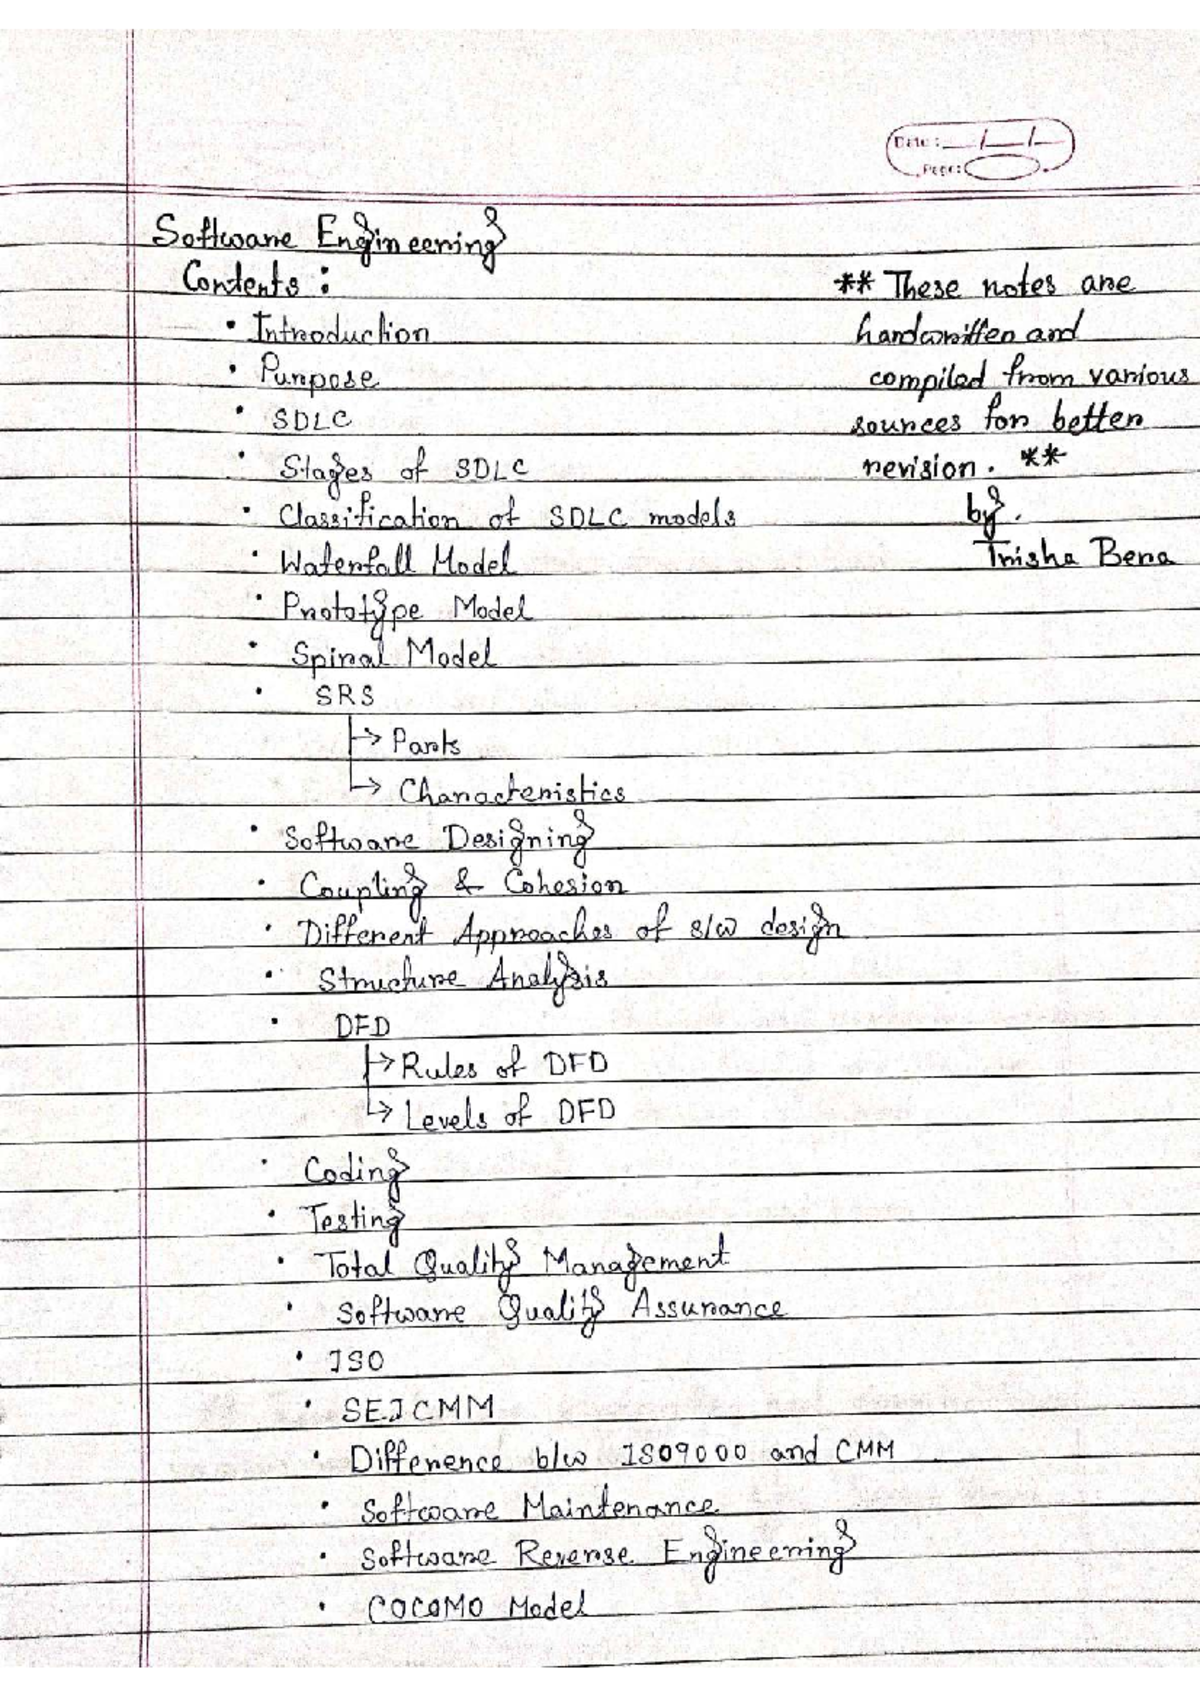 Date: / /
Page:
Software Engineering
Contents :
• Introduction
• Purpose
• SDLC
• Stages of SDLC
• Classification of SDLC models
• Waterfall Model
• Prototype Model
• Spiral Model
• SRS
→ Parts
→ Characteristics
• Software Designing
• Coupling & Cohesion
• Different Approaches of s/w design
• Structure Analysis
• DFD
→ Rules of DFD
→ Levels of DFD
• Coding
• Testing
• Total Quality Management
• Software Quality Assurance
• ISO
• SEICMM
• Difference b/w ISO9000 and CMM
• Software Maintenance
• Software Reverse Engineering
• COCOMO Model
** These notes are
handwritten and
compiled from various
sources for better
revision. **
by.
Trisha Bera